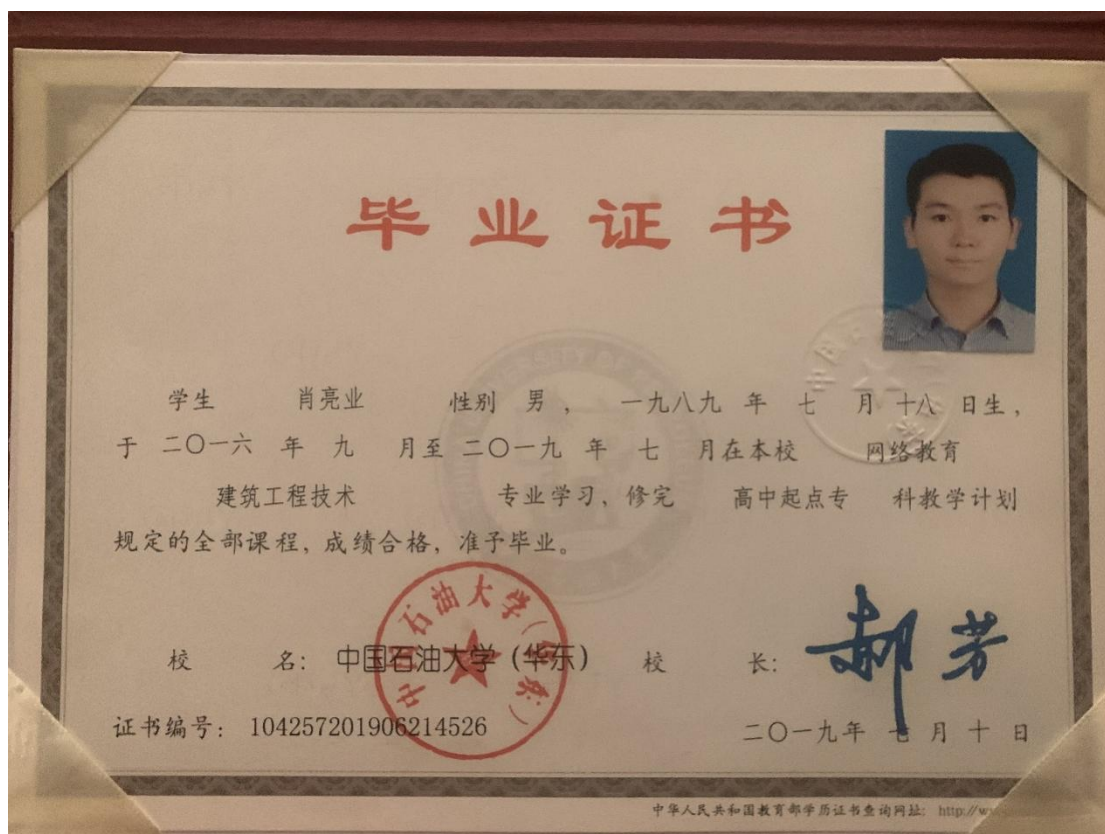 毕业证书
学生 肖亮业 性别 男 , 一九八九 年 七 月 十八 日生,
于 二〇一六 年 九 月至 二〇一九 年 七 月在本校 网络教育
建筑工程技术 专业学习, 修完 高中起点专 科教学计划
规定的全部课程, 成绩合格, 准予毕业。
中国石油大学(华东)
校 名: 中国石油大学 (华东) 校 长: 郝芳
证书编号: 104257201906214526 二〇一九年 七 月 十 日
中华人民共和国教育部学历证书查询网址: http://w